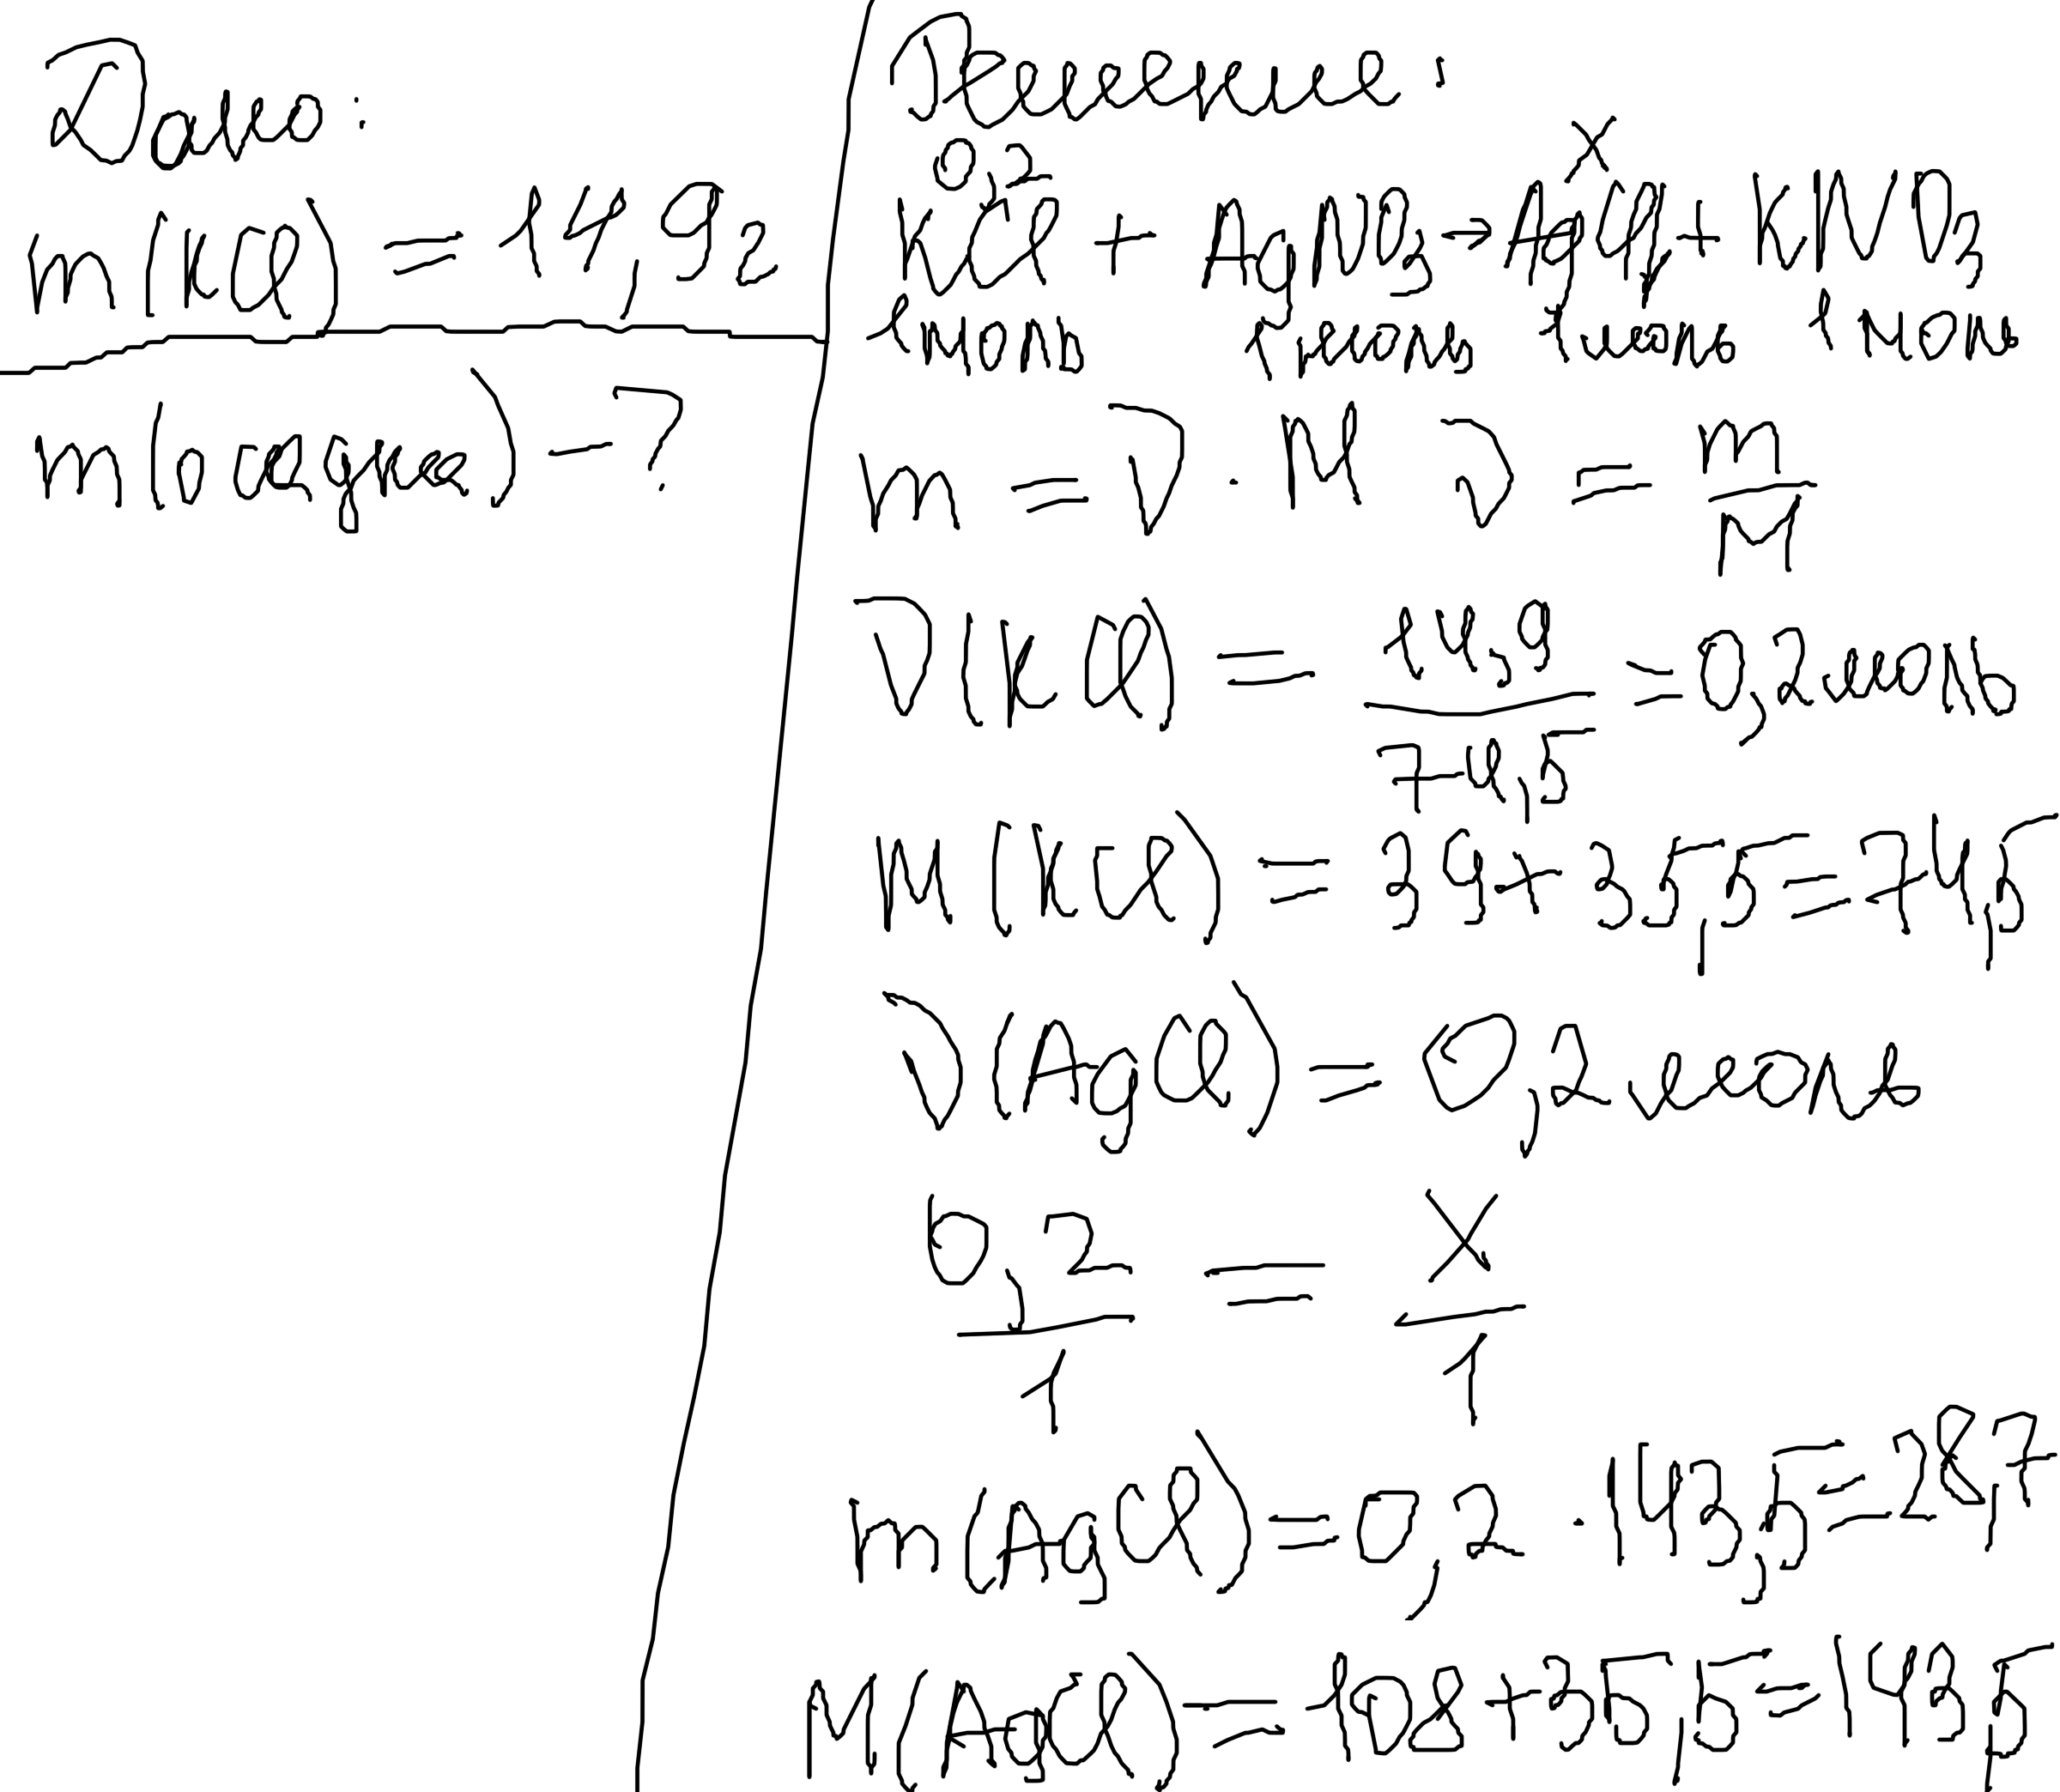 Дано:
m(KCl) = 14,9г
m(осадка) - ?
Решение:
0,2 x
KCl + AgNO3 = AgCl↓ + KNO3
1 моль 1 моль 1 моль 1 моль
m = ν · M ν = m/M
ν(KCl) = 14,9/74,5 = 0,2 моль
M(KCl) = 39+35,5=74,5
ν(AgCl) = 0,2 моль
0,2/1 = x/1
m(AgCl) = 0,2 · 143,5=28,7г
M(AgCl)=108+35,5=143,5